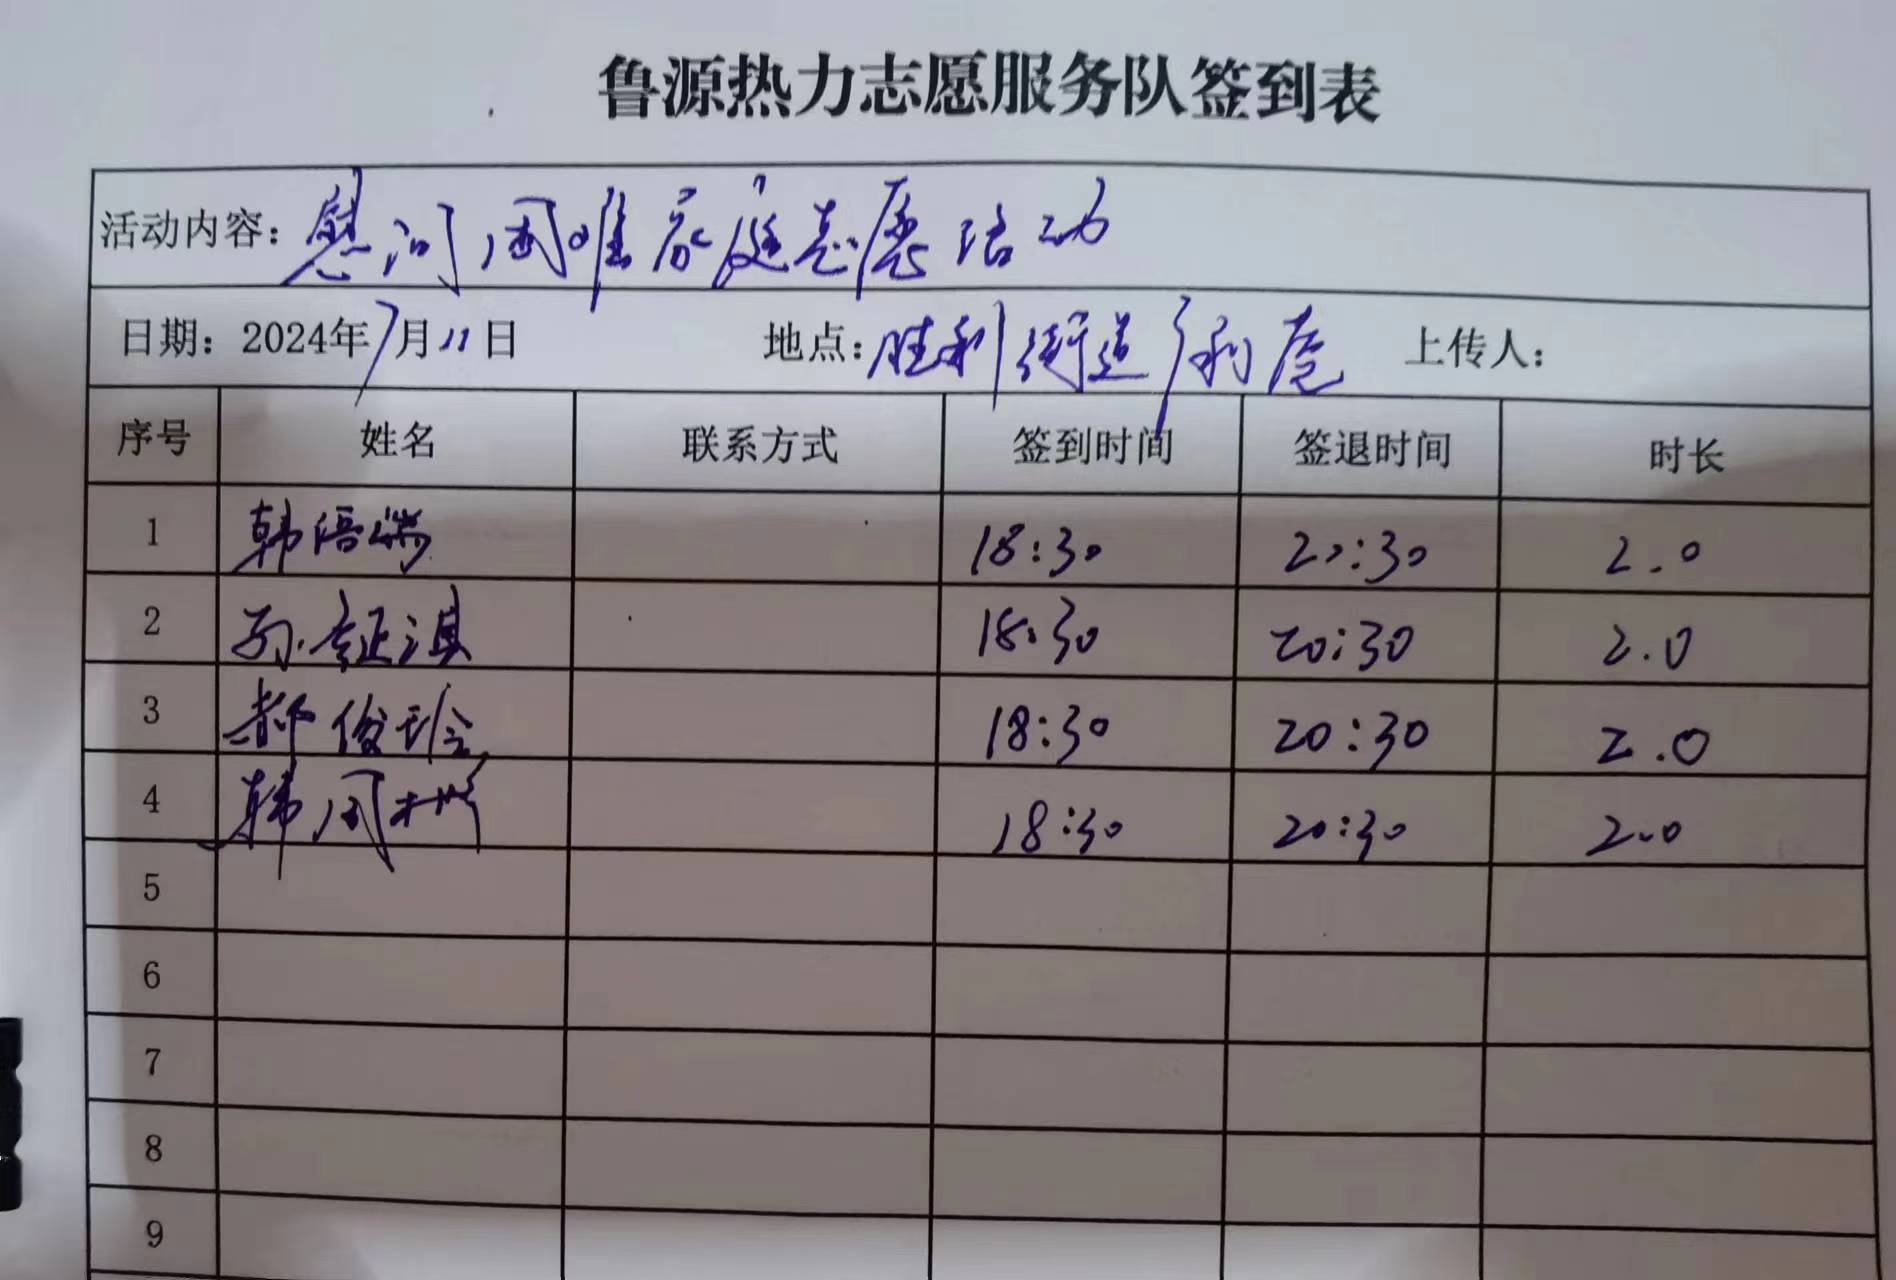 鲁源热力志愿服务队签到表
活动内容: 慰问困难家庭志愿活动
日期: 2024年7月11日 地点: 胜利街道 上传人:
序号 姓名 联系方式 签到时间 签退时间 时长
1 韩 18:30 20:30 2.0
2 孙 淇 18:30 20:30 2.0
3 郝俊玲 18:30 20:30 2.0
4 韩凤 18:30 20:30 2.0
5
6
7
8
9